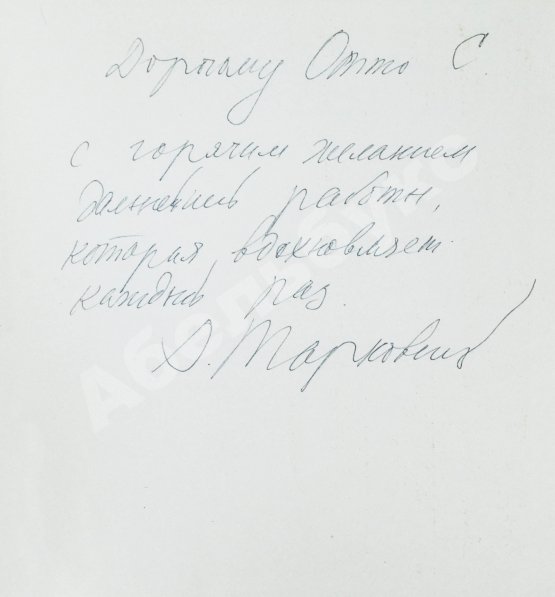 Дорогому Отто С.
с горячим желанием
дальнейшей работы,
которая вдохновляет
каждый раз.
А. Тарковский
Абельбукс